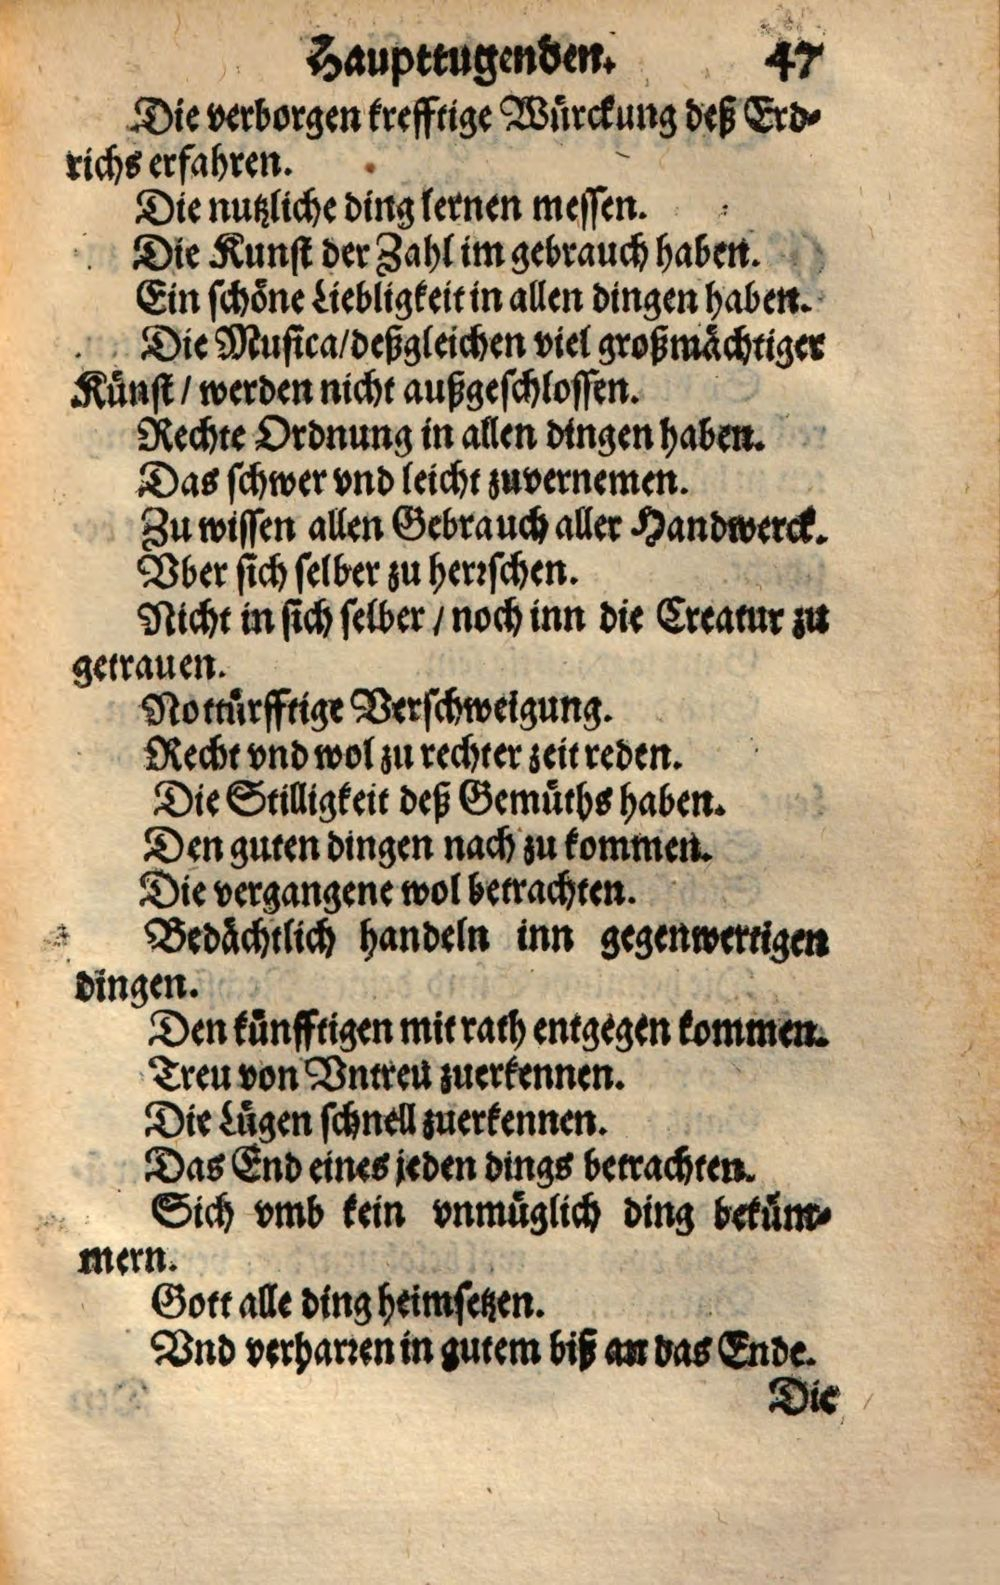 Haupttugenden. 47
Die verborgen krefftige Würckung deß Erd-
richs erfahren.
Die nutzliche ding lernen messen.
Die Kunst der Zahl im gebrauch haben.
Ein schöne Liebligkeit in allen dingen haben.
Die Musica/deßgleichen viel großmächtiger
Künst / werden nicht außgeschlossen.
Rechte Ordnung in allen dingen haben.
Das schwer vnd leicht zuvernemen.
Zu wissen allen Gebrauch aller Handwerck.
Vber sich selber zu herrschen.
Nicht in sich selber / noch inn die Creatur zu
getrauen.
Nottürfftige Verschweigung.
Recht vnd wol zu rechter zeit reden.
Die Stilligkeit deß Gemüths haben.
Den guten dingen nach zu kommen.
Die vergangene wol betrachten.
Bedächtlich handeln inn gegenwertigen
dingen.
Den künfftigen mit rath entgegen kommen.
Treu von Vntreu zuerkennen.
Die Lügen schnell zuerkennen.
Das End eines jeden dings betrachten.
Sich vmb kein vnmüglich ding beküm-
mern.
Gott alle ding heimsetzen.
Vnd verharren in gutem biß an das Ende.
Die